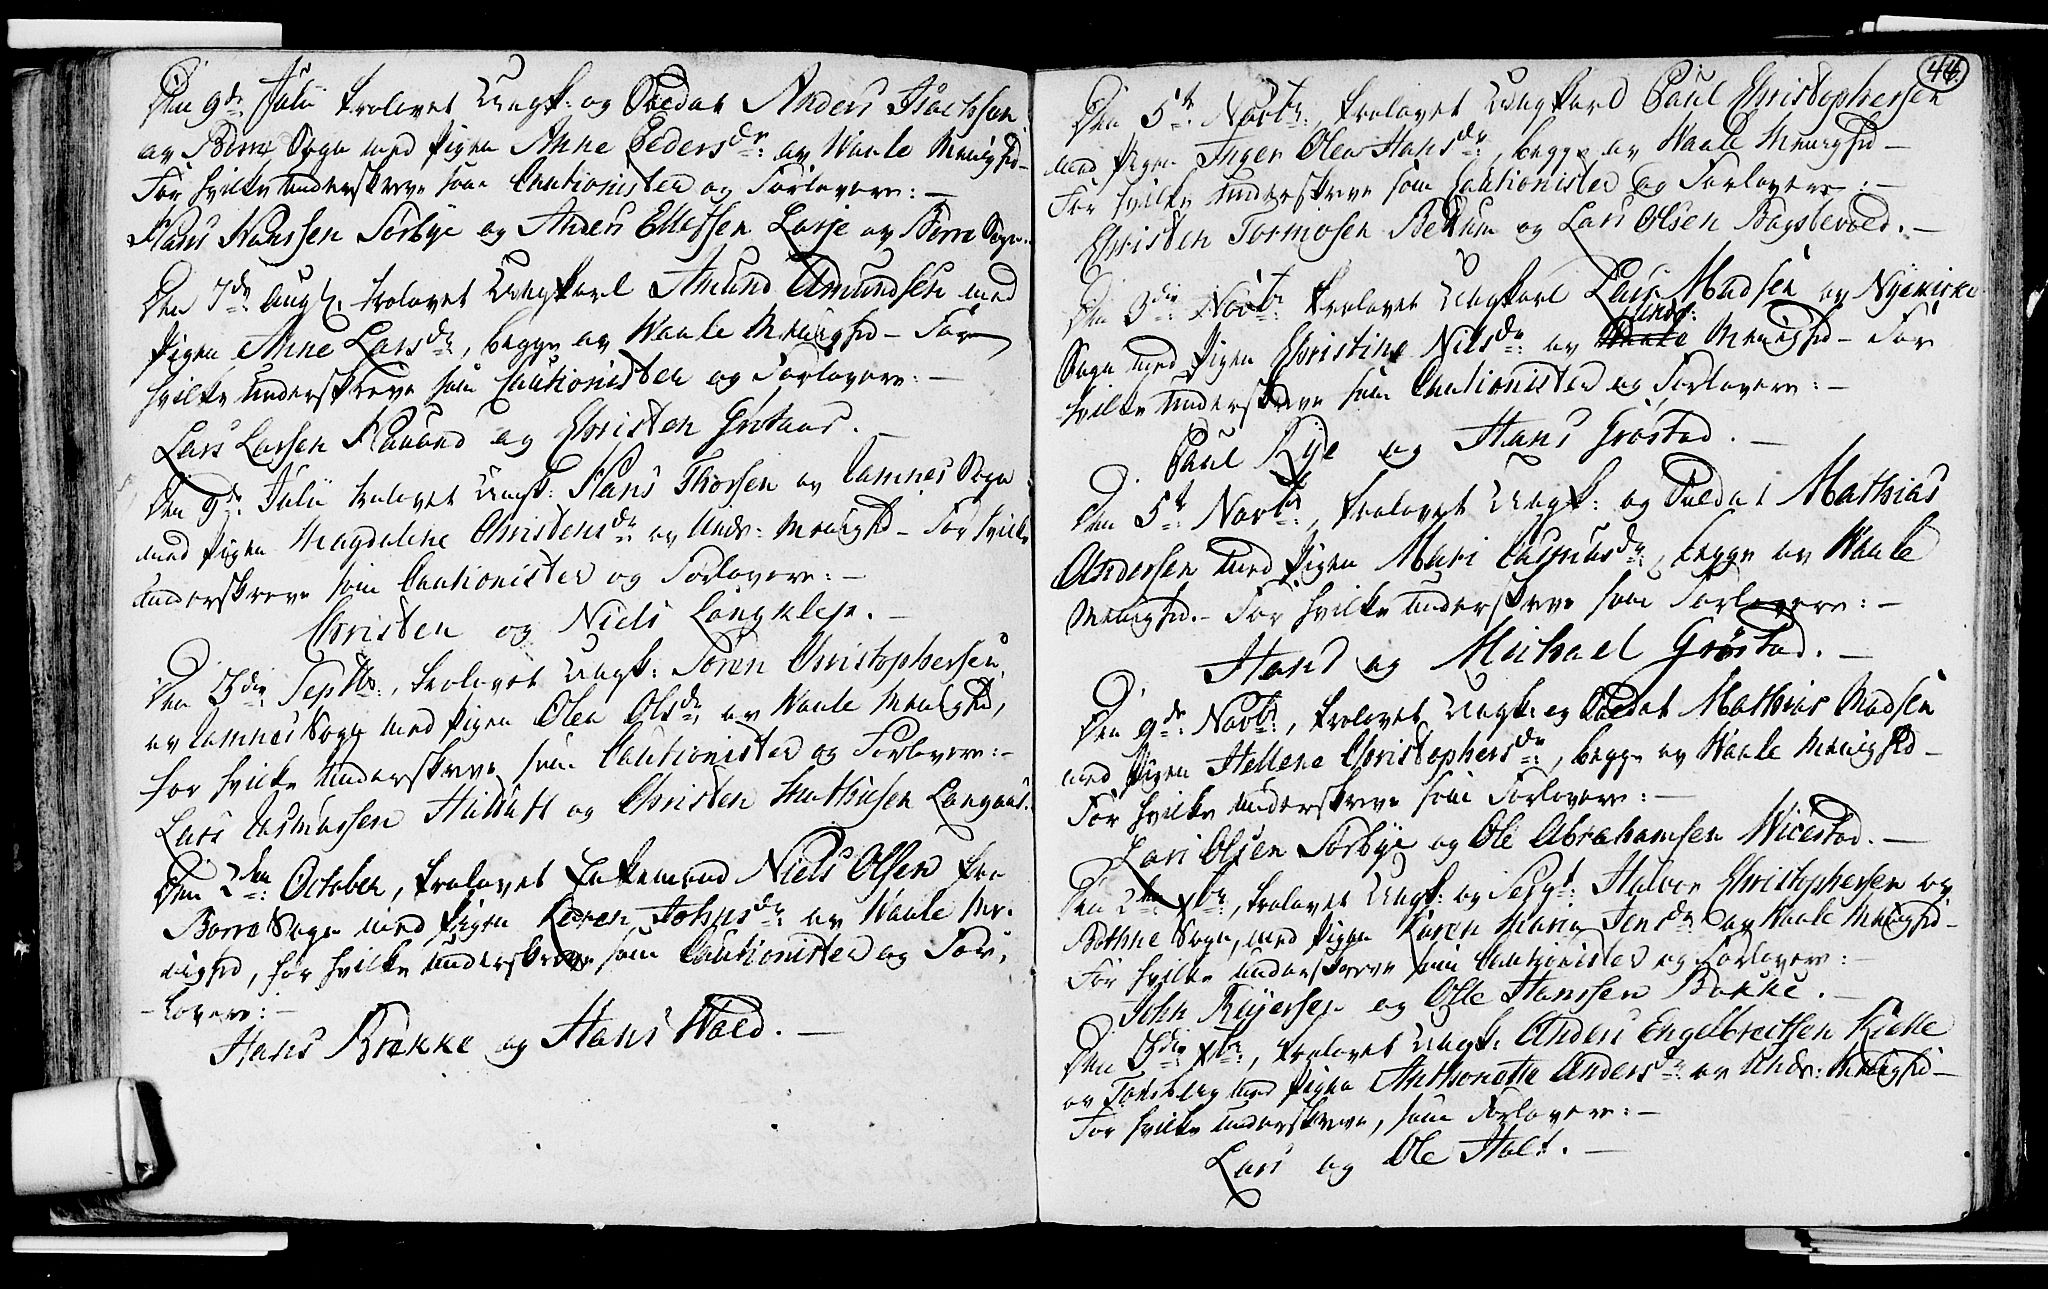 Den 9de Julii trolovet Ungk: og Soldat Anders Isachsen
av Borre Sogn med Pigen Anne Pedersdr: av Waale Menighd –
For hvilke underskreve som Cautionister og Forlovere: –
Hans Hanssen Sørbye og Anders Ellefsen av Borre Sogn. –
Den 7de Aug. trolovet Ungkarl Amund Amundsen med
Pigen Anne Larsdr:, begge av Waale Menighd – For
hvilke underskreve som Cautionister og Forlovere: –
Lars Larsen Raaund og Christen –
Den 9de Julii trolovet Ungk: Hans Thorsen av Ramnes Sogn
med Pigen Magdalene Christensdr: av Unds: Menighd – For hvilke
underskreve som Cautionister og Forlovere: –
Christen og Niels Langkleje. –
Den 3die Septbr:, trolovet Ungk: Søren Christophersen
av Ramnes Sogn med Pigen Olea Olsdr: av Waale Menighd,
for hvilke underskreve som Cautionister og Forlovere: –
Lars Rasmussen og Christen Mathisen Langaas.
Den 2den October, trolovet Enkemand Niels Olsen fra
Borre Sogn med Pigen Karen Johnsdr: av Waale Me-
nighd, for hvilke underskreve som Cautionister og For-
-lovere: –
Hans Brække og Hans Wold. –
44
Den 5te Novbr:, trolovet Ungkarl Paul Christophersen
med Pigen Inger Olea Hansdr:, begge av Waale Menighd –
For hvilke underskreve som Cautionister og Forlovere: –
Christen Tormosen Bettum og Lars Olsen Bagstevold. –
Den 3die Novbr: trolovet Ungkarl Lars Madsen av Nyekirke
Unds:
Sogn med Pigen Christine Nilsdr: av Waale Menighd – For
hvilke underskreve som Cautionister og Forlovere: –
Paul Rye og Hans Grøstad. –
Den 5te Novbr:, trolovet Ungk: og Soldat Mathias
Andersen med Pigen Mari Rasmusdr:, begge av Waale
Menighd. – For hvilke underskreve som Forlovere: –
Hans og Michael Grøstad. –
Den 9de Novbr:, trolovet Ungk: og Soldat Mathias Madsen
med Pigen Hellene Christophersdr:, begge av Waale Menighd –
For hvilke underskreve som Forlovere: –
Lars Olsen Sørbye og Ole Abrahamsen Wivestad. –
Den 2den Xbr:, trolovet Ungk: og Sergt: Halvor Christophersen av
Bothne Sogn, med Pigen Karen Maria Jensdr: av Waale Menighd –
For hvilke underskreve som Cautionister og Forlovere: –
John Reyersen og Olle Hanssen Bakke. –
Den 3die Xbr:, trolovet Ungk: Anders Engelbretsen Kielle
av Tønsberg med Pigen Anthonette Andersdr: av Unds: Menighd –
For hvilke underskreve, som Forlovere: –
Lars og Ole Holt. –